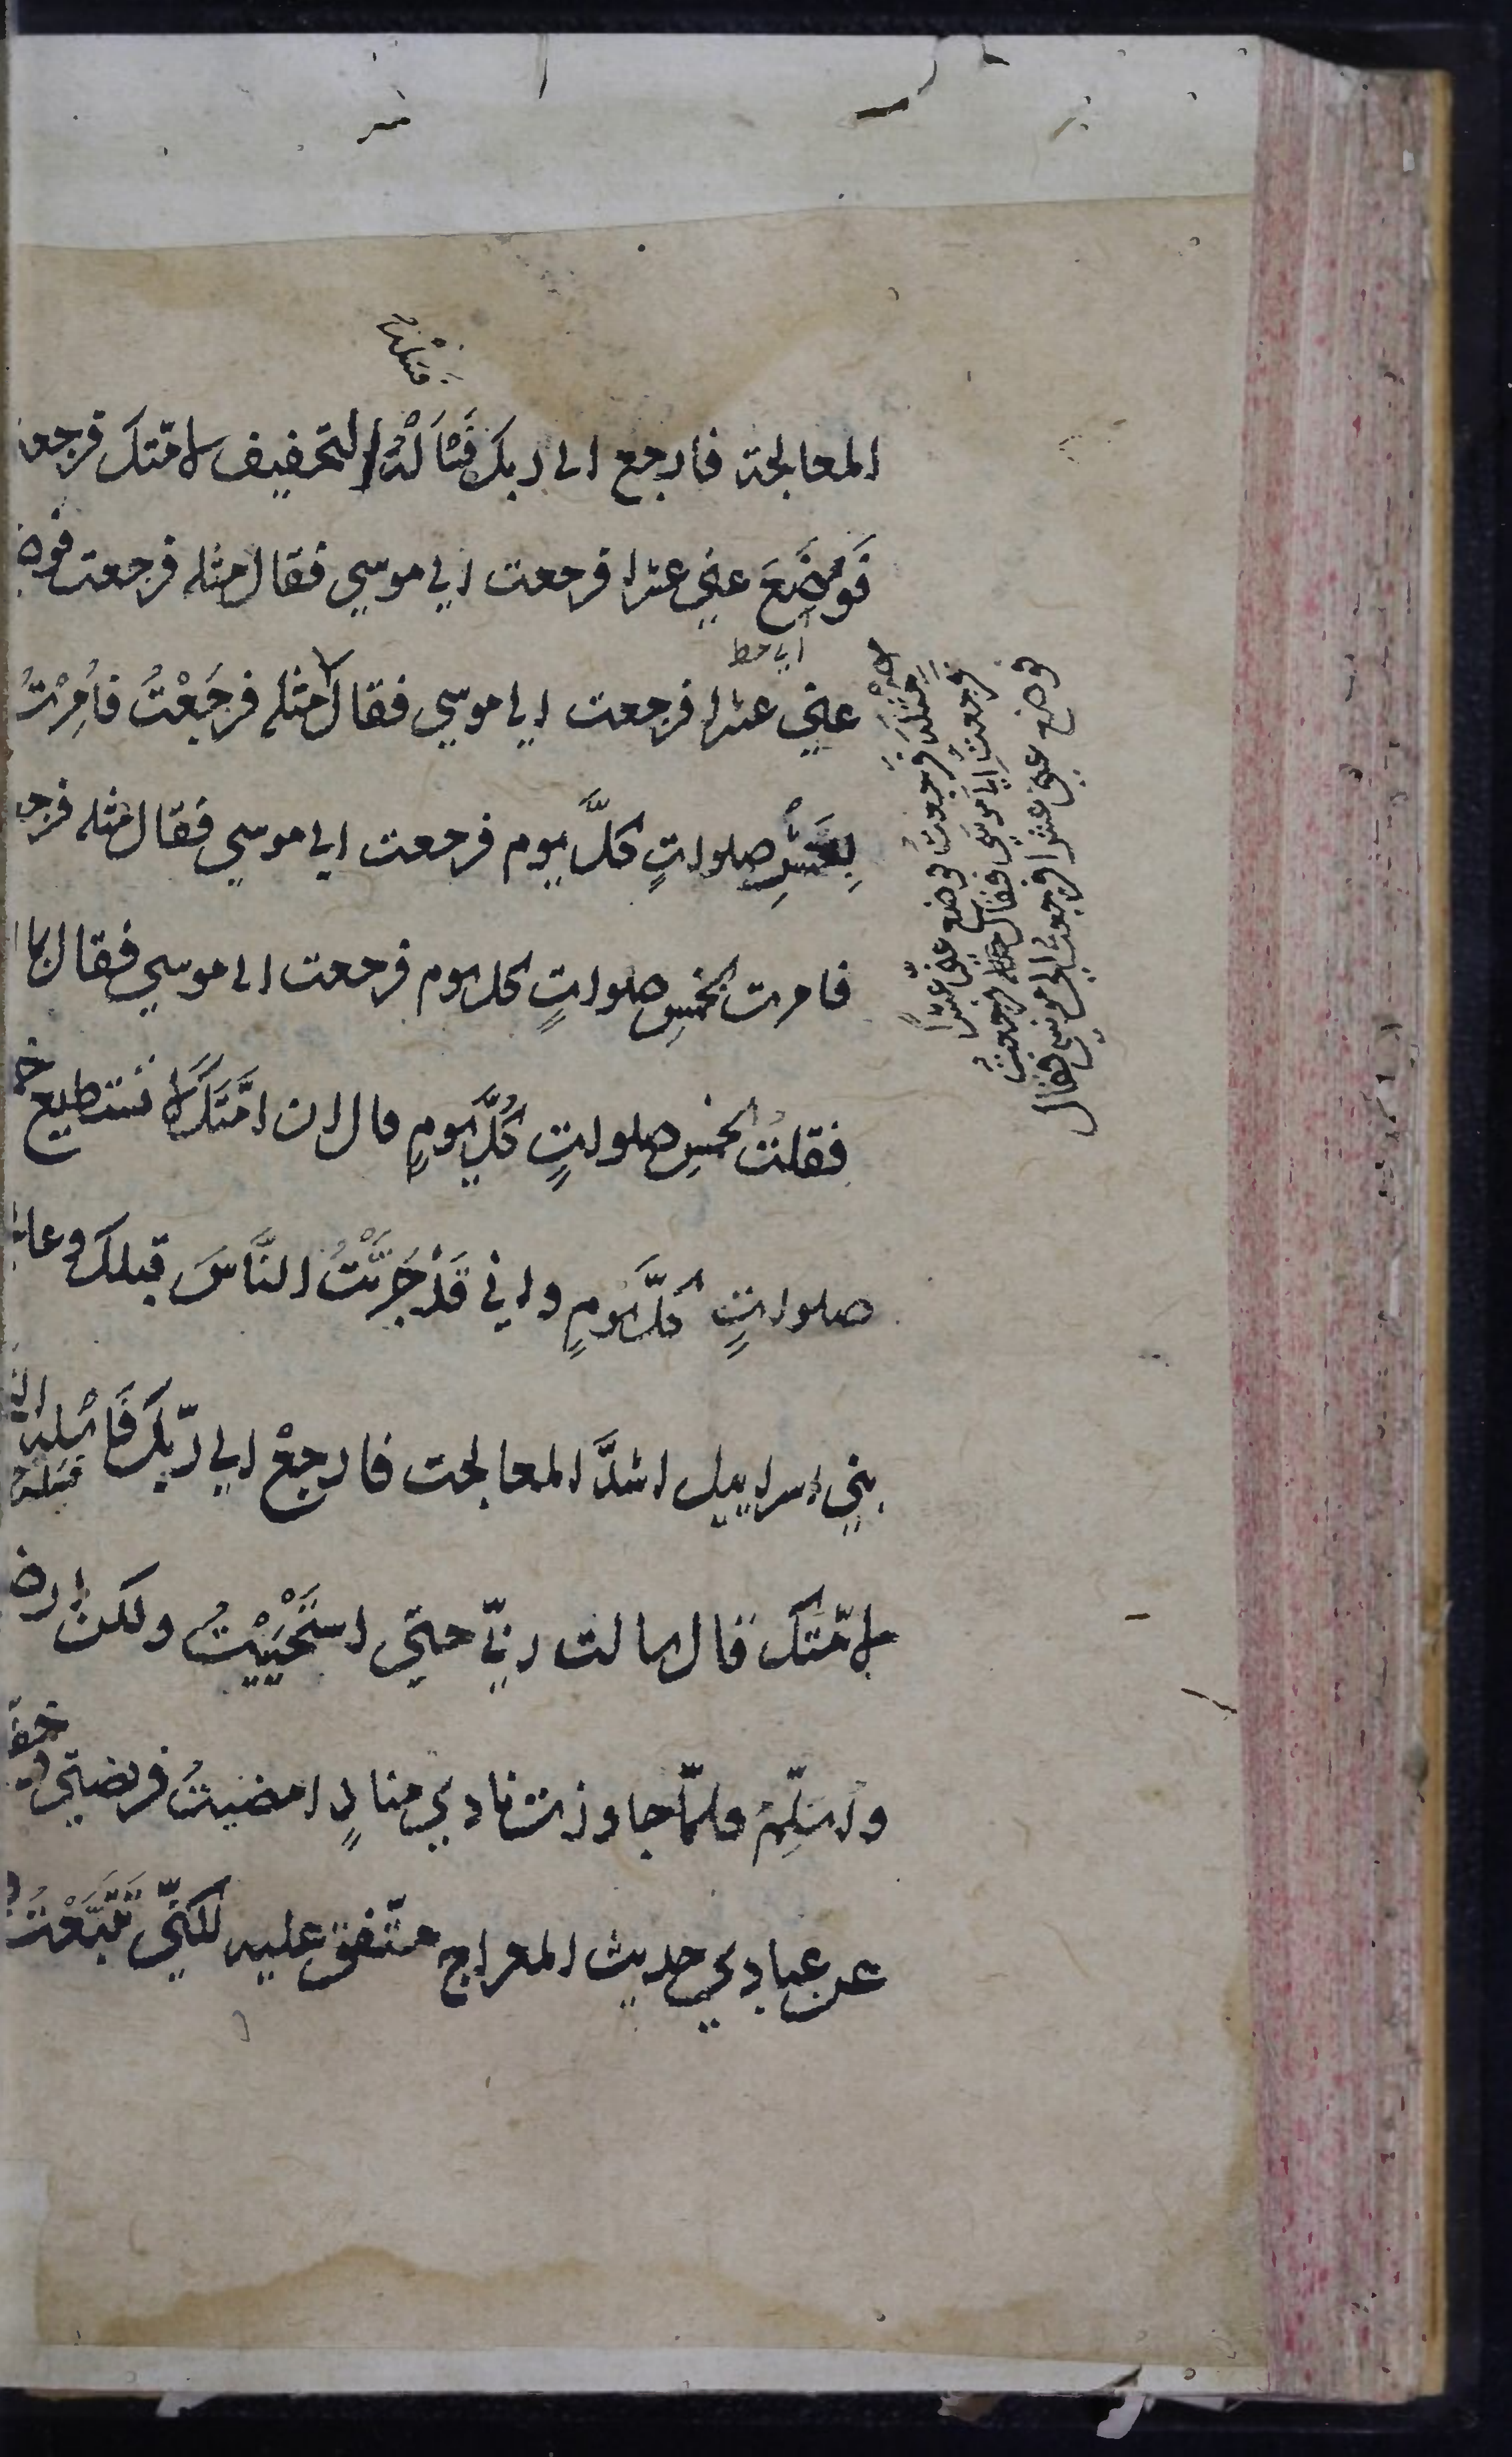 فسله
المعالجة فارجع الى ربك فَسْاَلْهُ التخفيف لامّتك فرجعت
فَوَضَعَ عني عشرا فرجعت الي موسي فقال مثله فرجعت فوض
اي حط
عني عشرا فرجعت الي موسي فقال مثله فرجَعْتُ فاُمِرْتُ
بِعَشْرِ صلواتٍ كلَّ يوم فرجعت الي موسي فقال مثله فرج
فامرت بخمسِ صلواتٍ كل يوم فرجعت الى موسي فقال بما
فقلتُ بخمسِ صلواتٍ كُلَّ يومٍ قال ان امّتَكَ لا تستطيع خ
صلواتٍ كلَّ يومٍ واني قَدْ جَرَّبْتُ النَّاسَ قبلك وعا
بني اسراييل اشدَّ المعالجت فارجعْ الي ربّكَ فَاسْلهُ ال
فسله
لامّتك قال سالت ربّي حتي استَحْيَيْتُ ولكن ارض
واسلِّمُ فلمّا جاوزت نادي منادٍ امضيتُ فريضتي وخفّ
عن عبادي حديث المعراج متّفق عليه لكنّي تَتَبَّعْتُ
مثله فرجعت فوضع عني عشرا
فرجعت الي موسي فقال مثله فرجعت
فوضع عني عشرا فرجعت الي موسي فقال